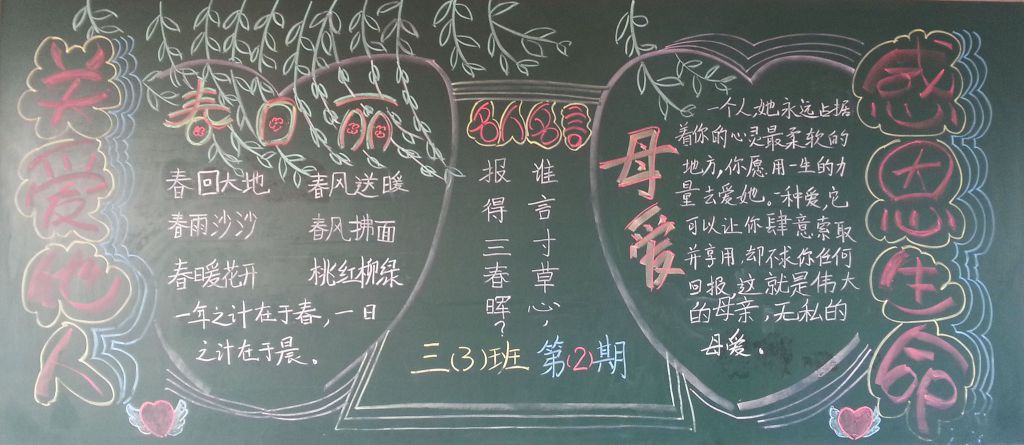 关爱他人
春回雨
春回大地 春风送暖
春雨沙沙 春风拂面
春暖花开 桃红柳绿
一年之计在于春，一日
之计在于晨。
名人名言
谁言寸草心，
报得三春晖？
三(3)班 第(2)期
母爱
一个人,她永远占据
着你的心灵最柔软的
地方,你愿用一生的力
量去爱她。一种爱,它
可以让你肆意索取
并享用,却不求你任何
回报,这就是伟大
的母亲,无私的
母爱。
感恩生命